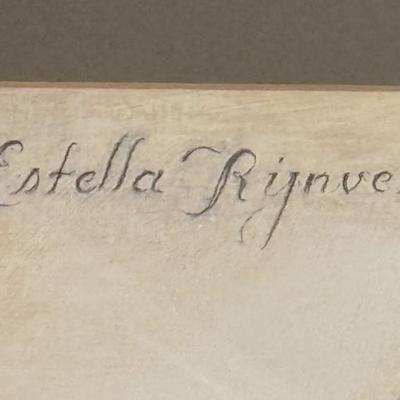 Estella Rijnve